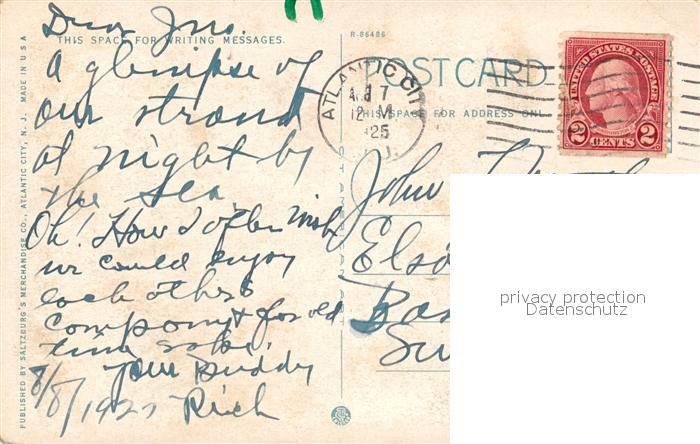 Dear Jno.
THIS SPACE FOR WRITING MESSAGES.
A glimpse of
our strand
at night by
the sea.
Oh! How I often wish
we could enjoy
each others
company & for old
time sake.
Your Buddy
8/8/1925 Rich
PUBLISHED BY SALTZBURG'S MERCHANDISE CO., ATLANTIC CITY, N. J. MADE IN U S A
R-86486
POST CARD
THIS SPACE FOR ADDRESS ONLY
ATLANTIC CITY
AUG 7
12 M
1925
N.J.
UNITED STATES POSTAGE
2 CENTS 2
John
privacy protection
Datenschutz